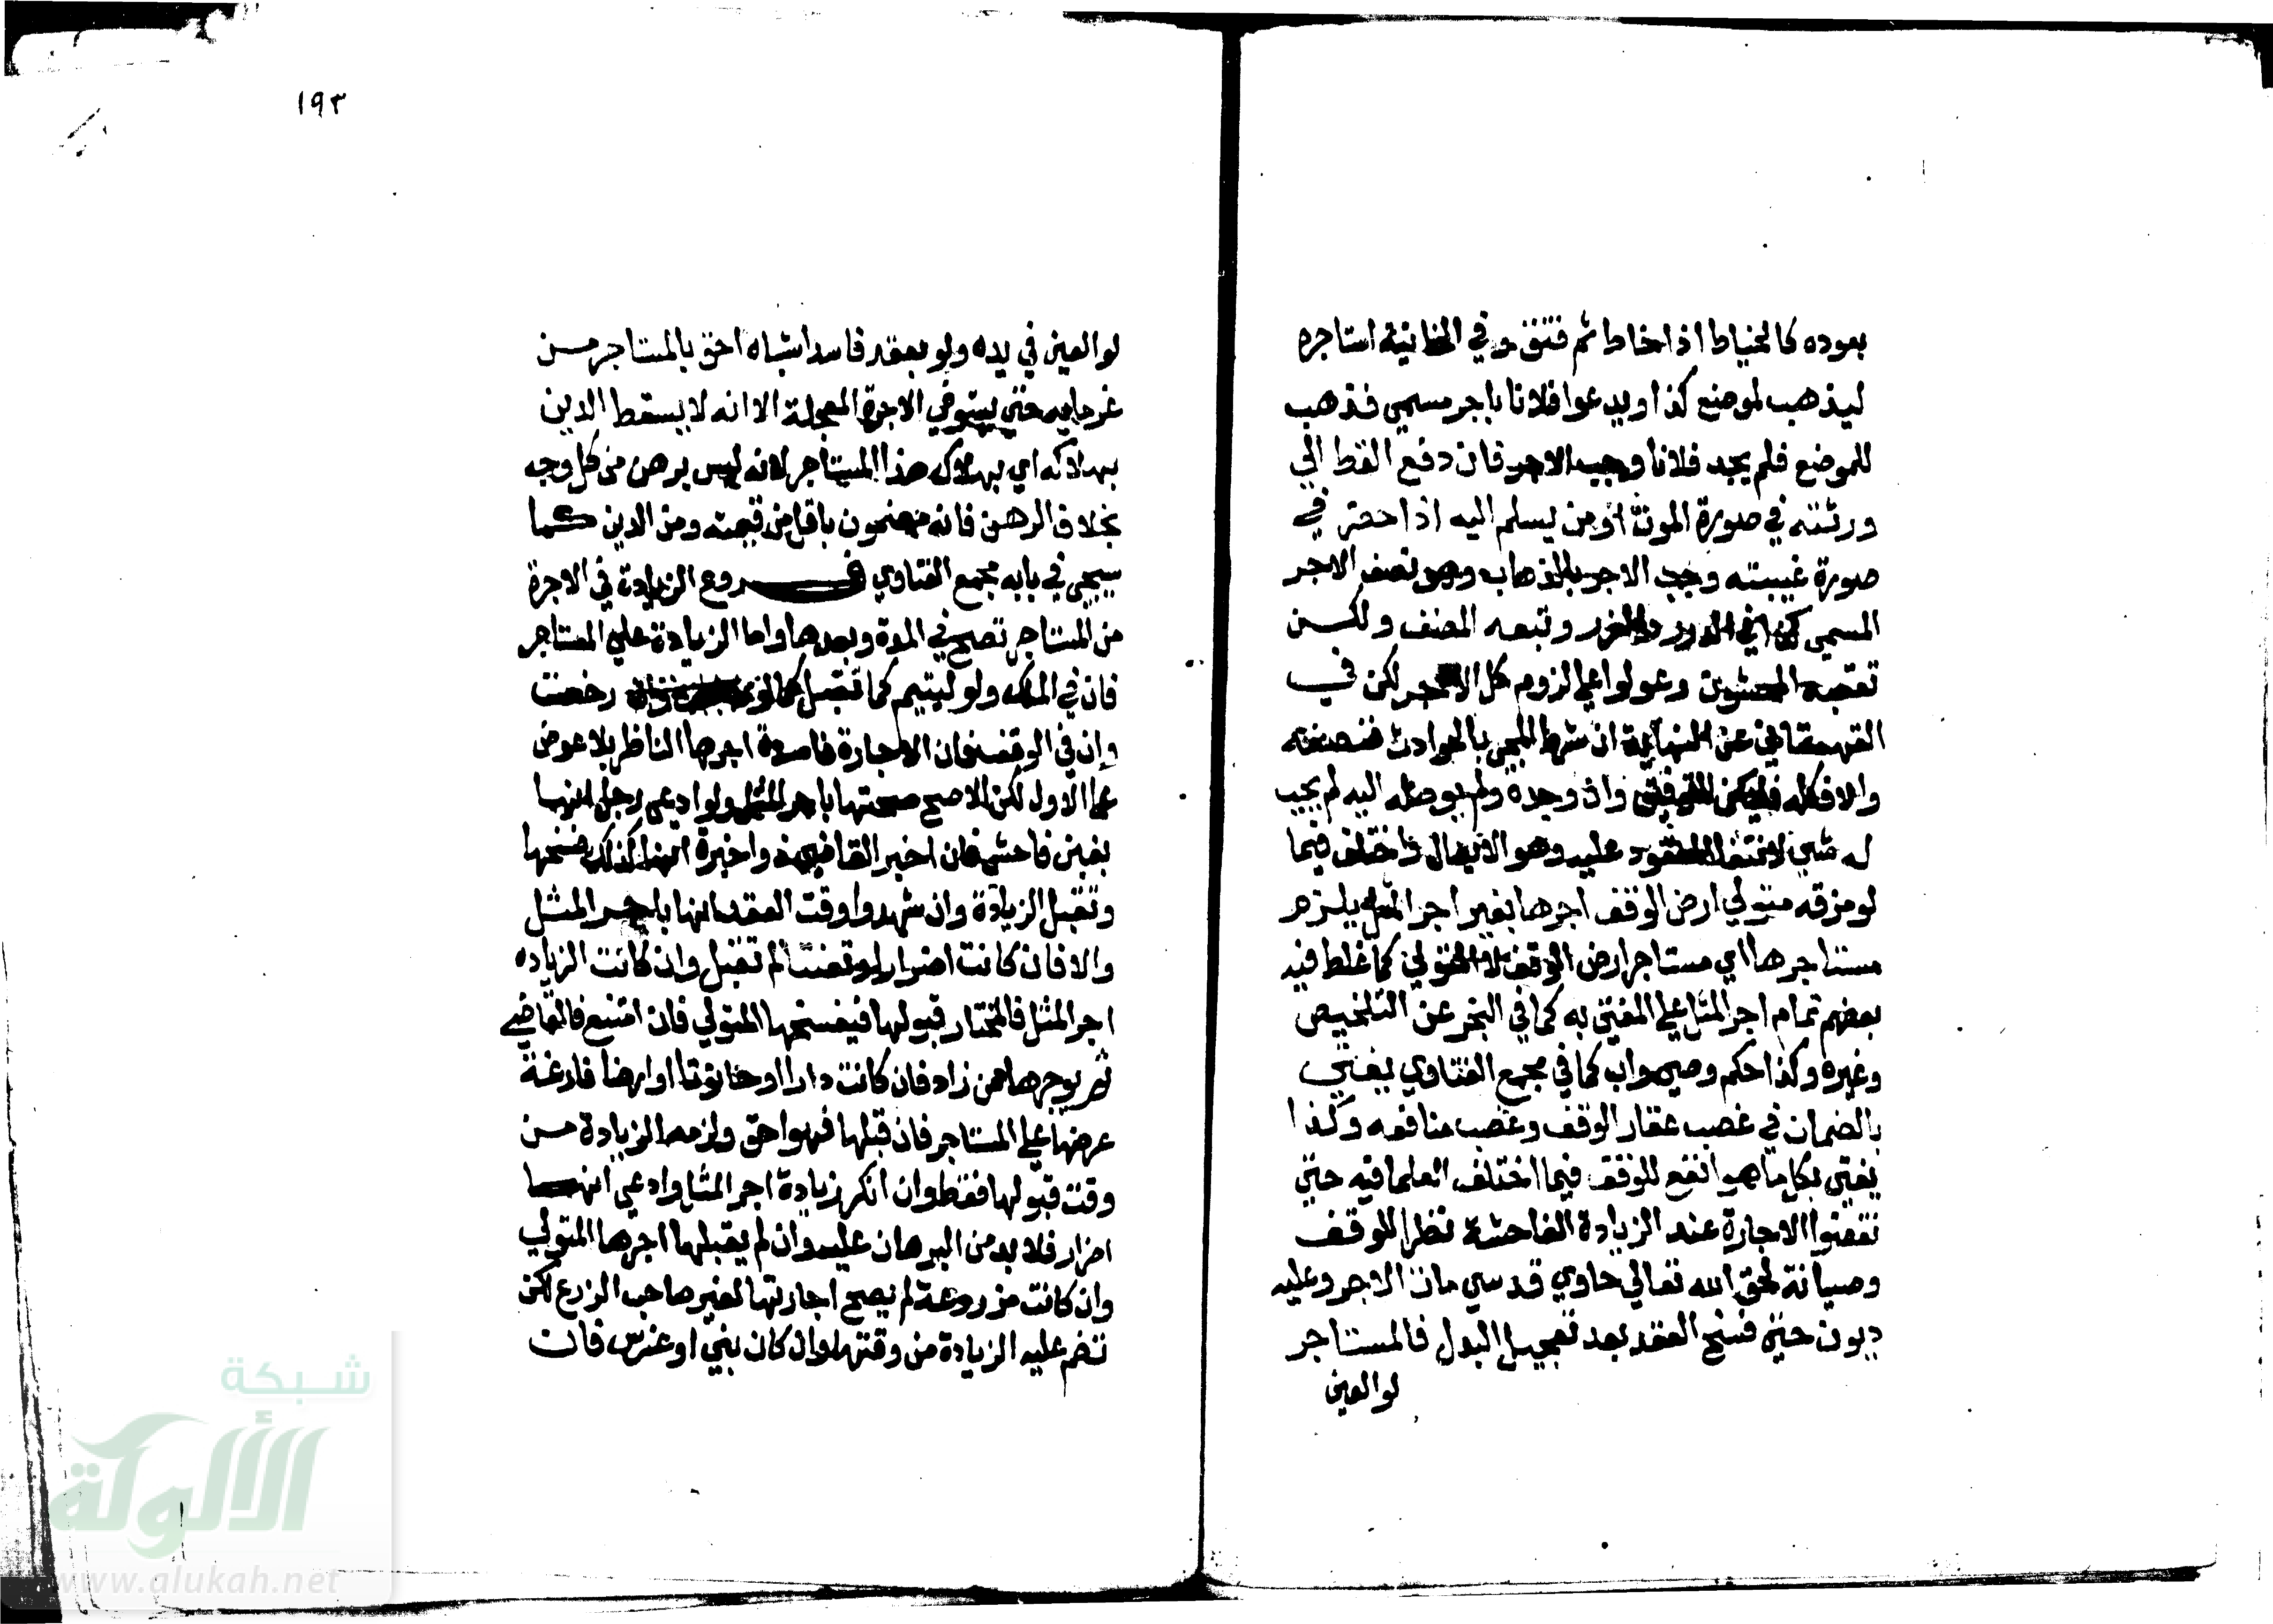 بعوده كالخياط اذا خاط ثم فتق وفي الخانية استاجره
ليذهب لموضع كذا ويدعوا فلانا باجر مسمي فذهب
للموضع فلم يجد فلانا وجب الاجر فان دفع القط الي
ورثته في صورة الموت او من يسلم اليه اذا حضر في
صورة غيبته وجب الاجر بالذهاب وهو نصف الاجر
المسمي كذا في الدرر والغرر وتبعه المصنف ولكن
تعقبه المحشون وعولوا علي لزوم كل الاجر لكن في
القهستاني عن النهاية ان شرط المجي بالجواب فنصفه
والا فكله فليكن التوفيق وان وجده ولم يوصله اليه لم يجب
له شي لانتفا المعقود عليه وهو الايصال واختلف فيما
لو مزقه متولي ارض الوقف اجرها بغير اجر المثل يلزم
مستاجرها اي مستاجر ارض الوقف لا المتولي كما غلط فيه
بعضهم تمام اجر المثل علي المفتي به كما في البحر عن التلخيص
وغيره وكذا حكم وصي واب كما في مجمع الفتاوي يفتي
بالضمان في غصب عقار الوقف وغصب منافعه وكذا
يفتي بكل ما هو انفع للوقف فيما اختلف العلما فيه حتي
نقضوا الاجارة عند الزيادة الفاحشة نظرا للوقف
وصيانة لحق الله تعالي حاوي قدسي مات الاجر وعليه
ديون حتي فسخ العقد بعد تعجيل البدل فالمستاجر
لو العين
١٩٣
لو العين في يده ولو بعقد فاسد اشباه احق بالمستاجر من
غرمايه حتي يستوفي الاجرة المعجلة الا انه لا يسقط الدين
بهلاكه اي بهلاك هذا المستاجر لانه ليس برهن من كل وجه
بخلاف الرهن فانه مضمون باقل من قيمته ومن الدين كما
سيجي في بابه مجمع الفتاوي فروع الزيادة في الاجرة
من المستاجر تصح في المدة وبعدها واما الزيادة علي المستاجر
فان في الملك ولو ليتيم لم تقبل كما لو رخصت
وان في الوقف فان الاجارة فاسدة اجرها الناظر بلا عرض
علي الاول لكن الاصح صحتها باجر المثل ولو ادعي رجل انها
بغبن فاحش فان اخبر القاضي ذو خبرة انها كذلك فسخها
وتقبل الزيادة وان شهدوا وقت العقد انها باجر المثل
والا فان كانت اضرارا وتعنتا لم تقبل وان كانت الزياده
اجر المثل فالمختار قبولها فيفسخها المتولي فان امتنع فالقاضي
ثم يوجرها ممن زاد فان كانت دارا او حانوتا او ارضا فارغة
عرضها علي المستاجر فان قبلها فهو احق ولزمه الزيادة من
وقت قبولها فقط وان انكر زيادة اجر المثل وادعي انها
اضرار فلا بد من البرهان عليه وان لم يقبلها اجرها المتولي
وان كانت مزروعة لم يصح اجارتها لغير صاحب الزرع لكن
تضم عليه الزيادة من وقتها وان كان بني او غرس فان
شبكة
الألوكة
www.alukah.net